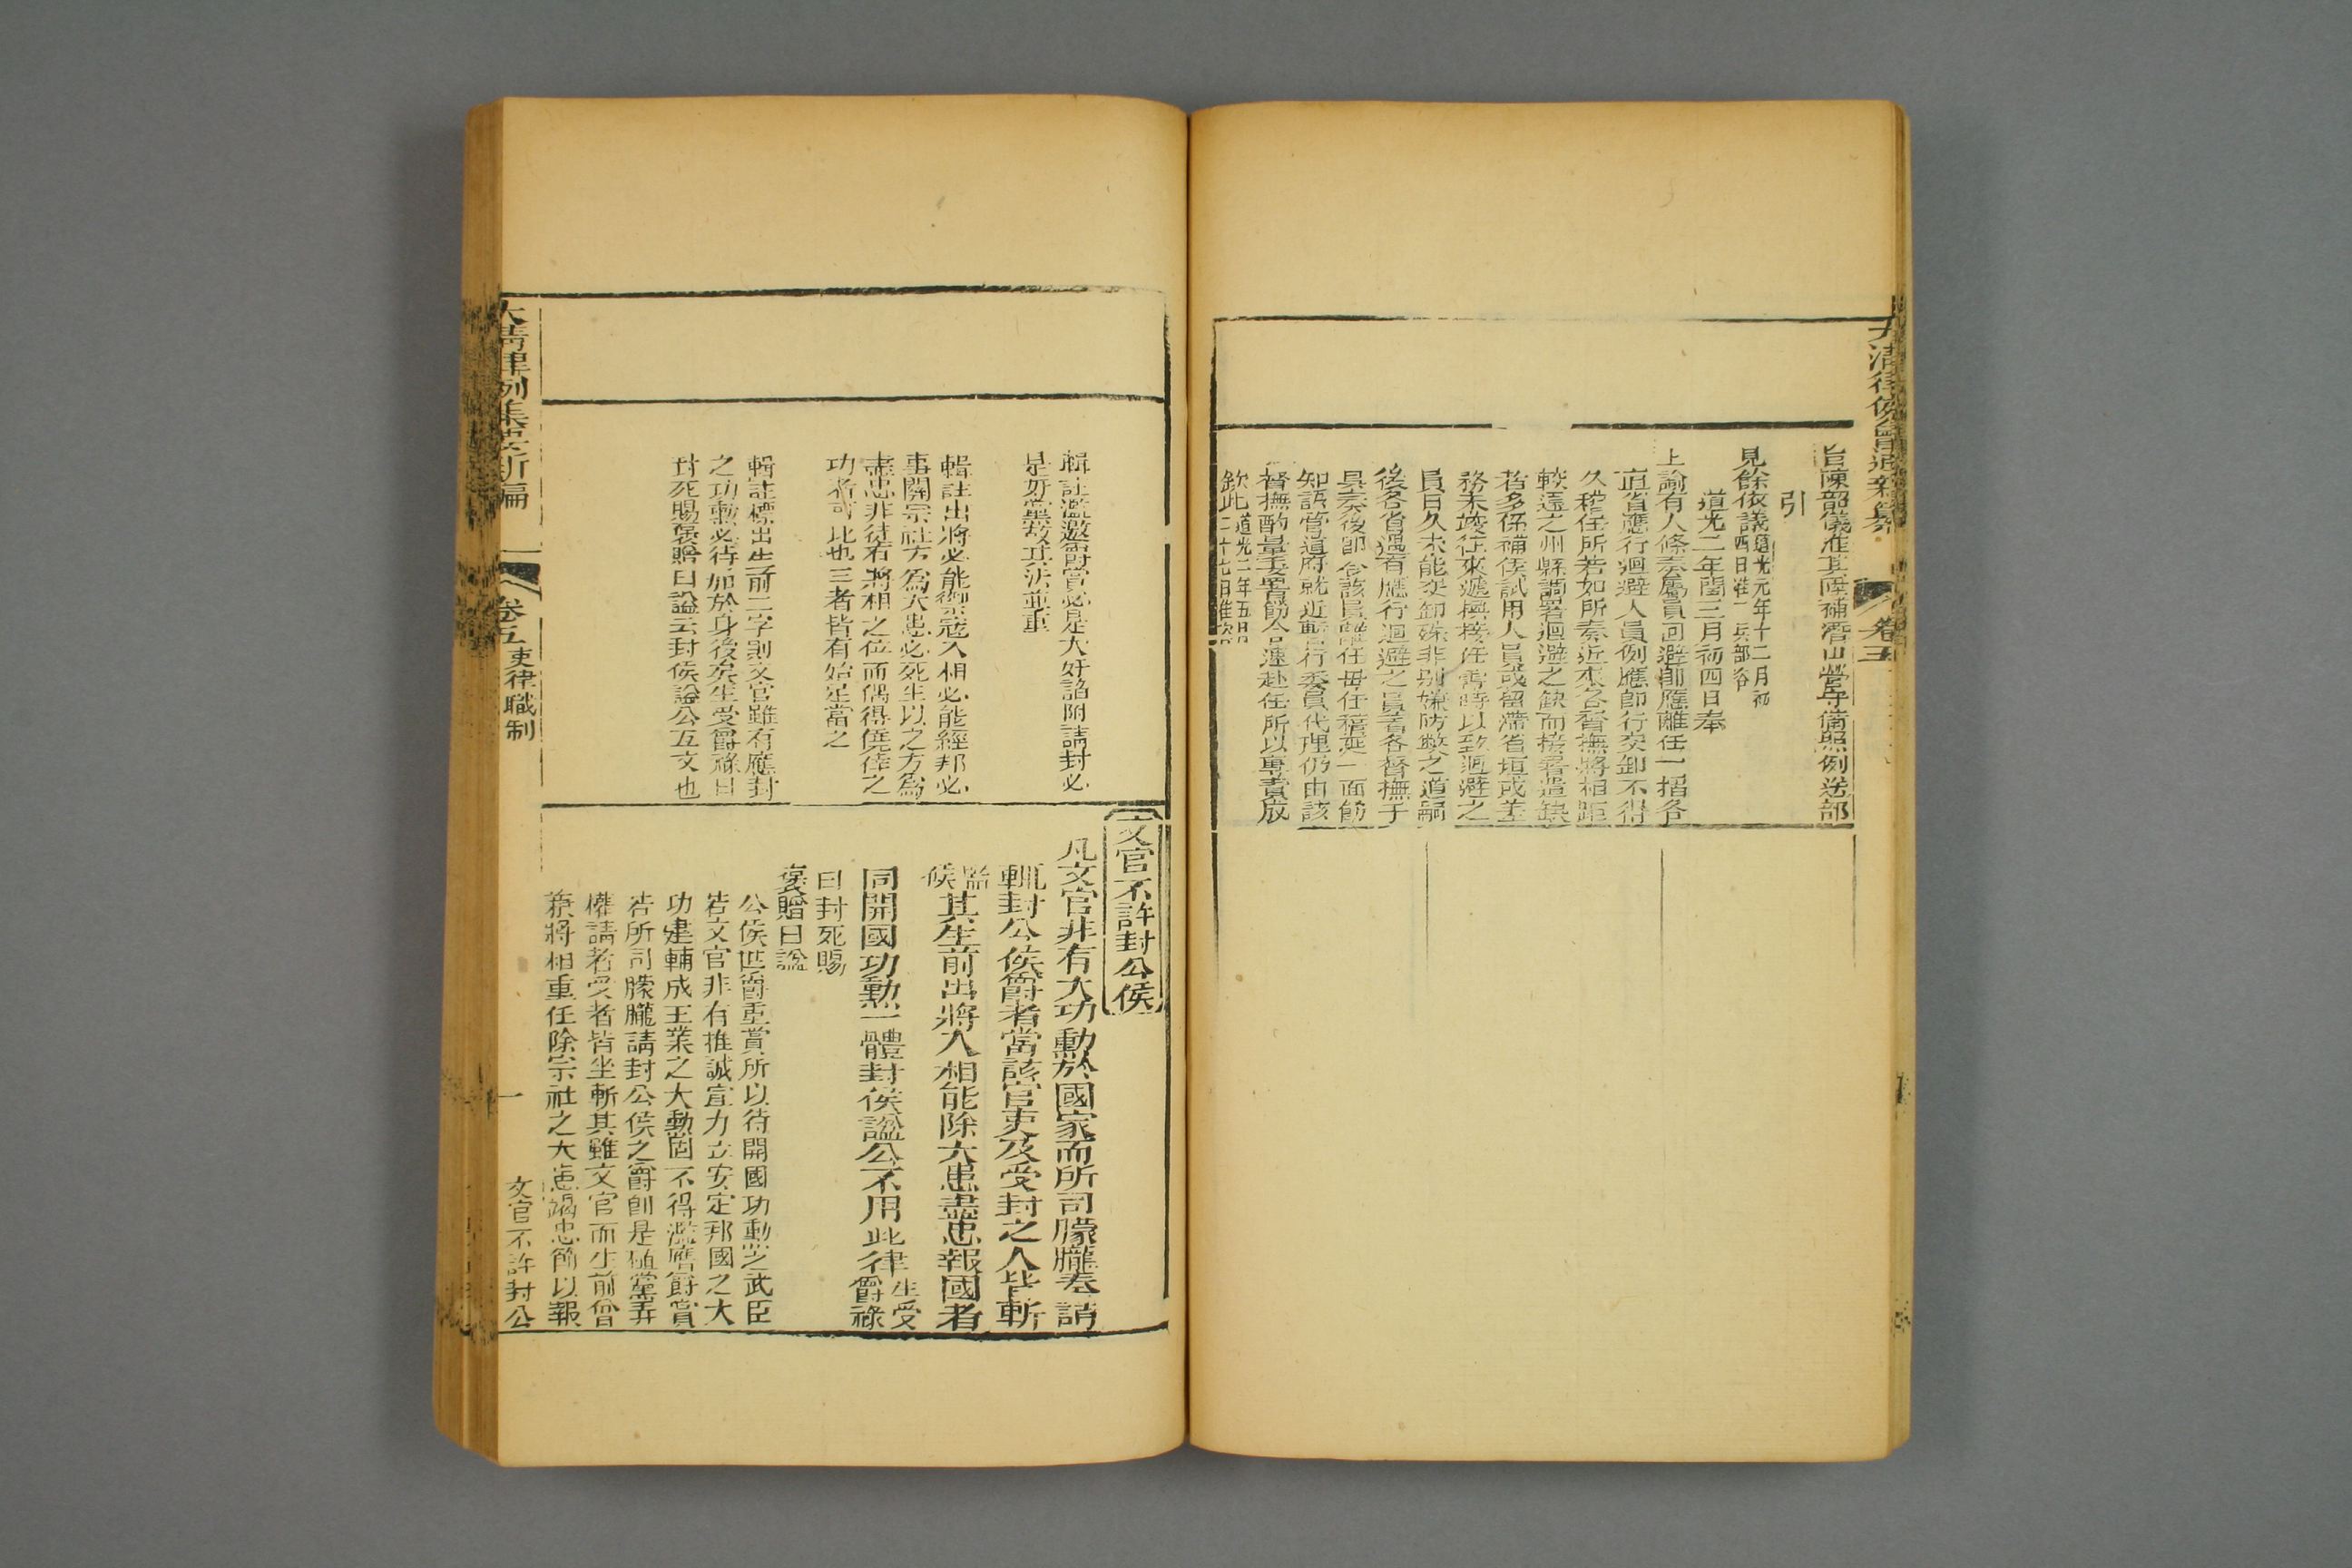 旨陳韶儀准其陞補潛山營守備照例送部
引
見餘依議道光元年十二月初
四日准兵部咨
道光二年閏三月初四日奉
上諭有人條奏屬員迴避即應離任一摺各
直省應行迴避人員例應即行交卸不得
久稽任所若如所奏近來各督撫將相距
較遠之州縣調署迴避之缺而接署遺缺
者多係補侯試用人員或留滯省垣或差
務未竣往來遞換接任需時以致迴避之
員日久未能交卸殊非別嫌防弊之道嗣
後各省遇有應行迴避之員著各督撫于
具奏後即令該員離任毋任稽延一面飭
知該管道府就近暫行委員代理仍由該
督撫酌量委署飭令迅速赴任所以專責成
欽此道光二年五月
二十七日准咨
卷三
文官不許封公侯
凡文官非有大功勳於國家而所司朦朧奏請
輒封公侯爵者當該官吏及受封之人皆斬
監候其生前出將入相能除大患盡忠報國者
同開國功勳一體封侯謚公不用此律生受爵祿
曰封死賜
褒贈曰謚
公侯世爵重賞所以待開國功勳之武臣
若文官非有推誠宣力立安定邦國之大
功建輔成王業之大勳固不得濫膺爵賞
若所司朦朧請封公侯之爵即是植黨弄
權請者受者皆坐斬其雖文官而生前曾
秉將相重任除宗社之大患竭忠節以報
輯註濫邀爵賞必是大奸諂附請封必
是奸黨故其法並重
輯註出將必能禦寇入相必能經邦必
事關宗社方為大患必死生以之方為
盡忠非徒有將相之位而偶得僥倖之
功者可比也三者皆有始足當之
輯註標出生前二字則文官雖有應封
之功勳必待加於身後矣生受爵祿曰
封死賜褒贈曰謚云封侯謚公互文也
大清律例集要新編
卷五
吏律職制
一
文官不許封公